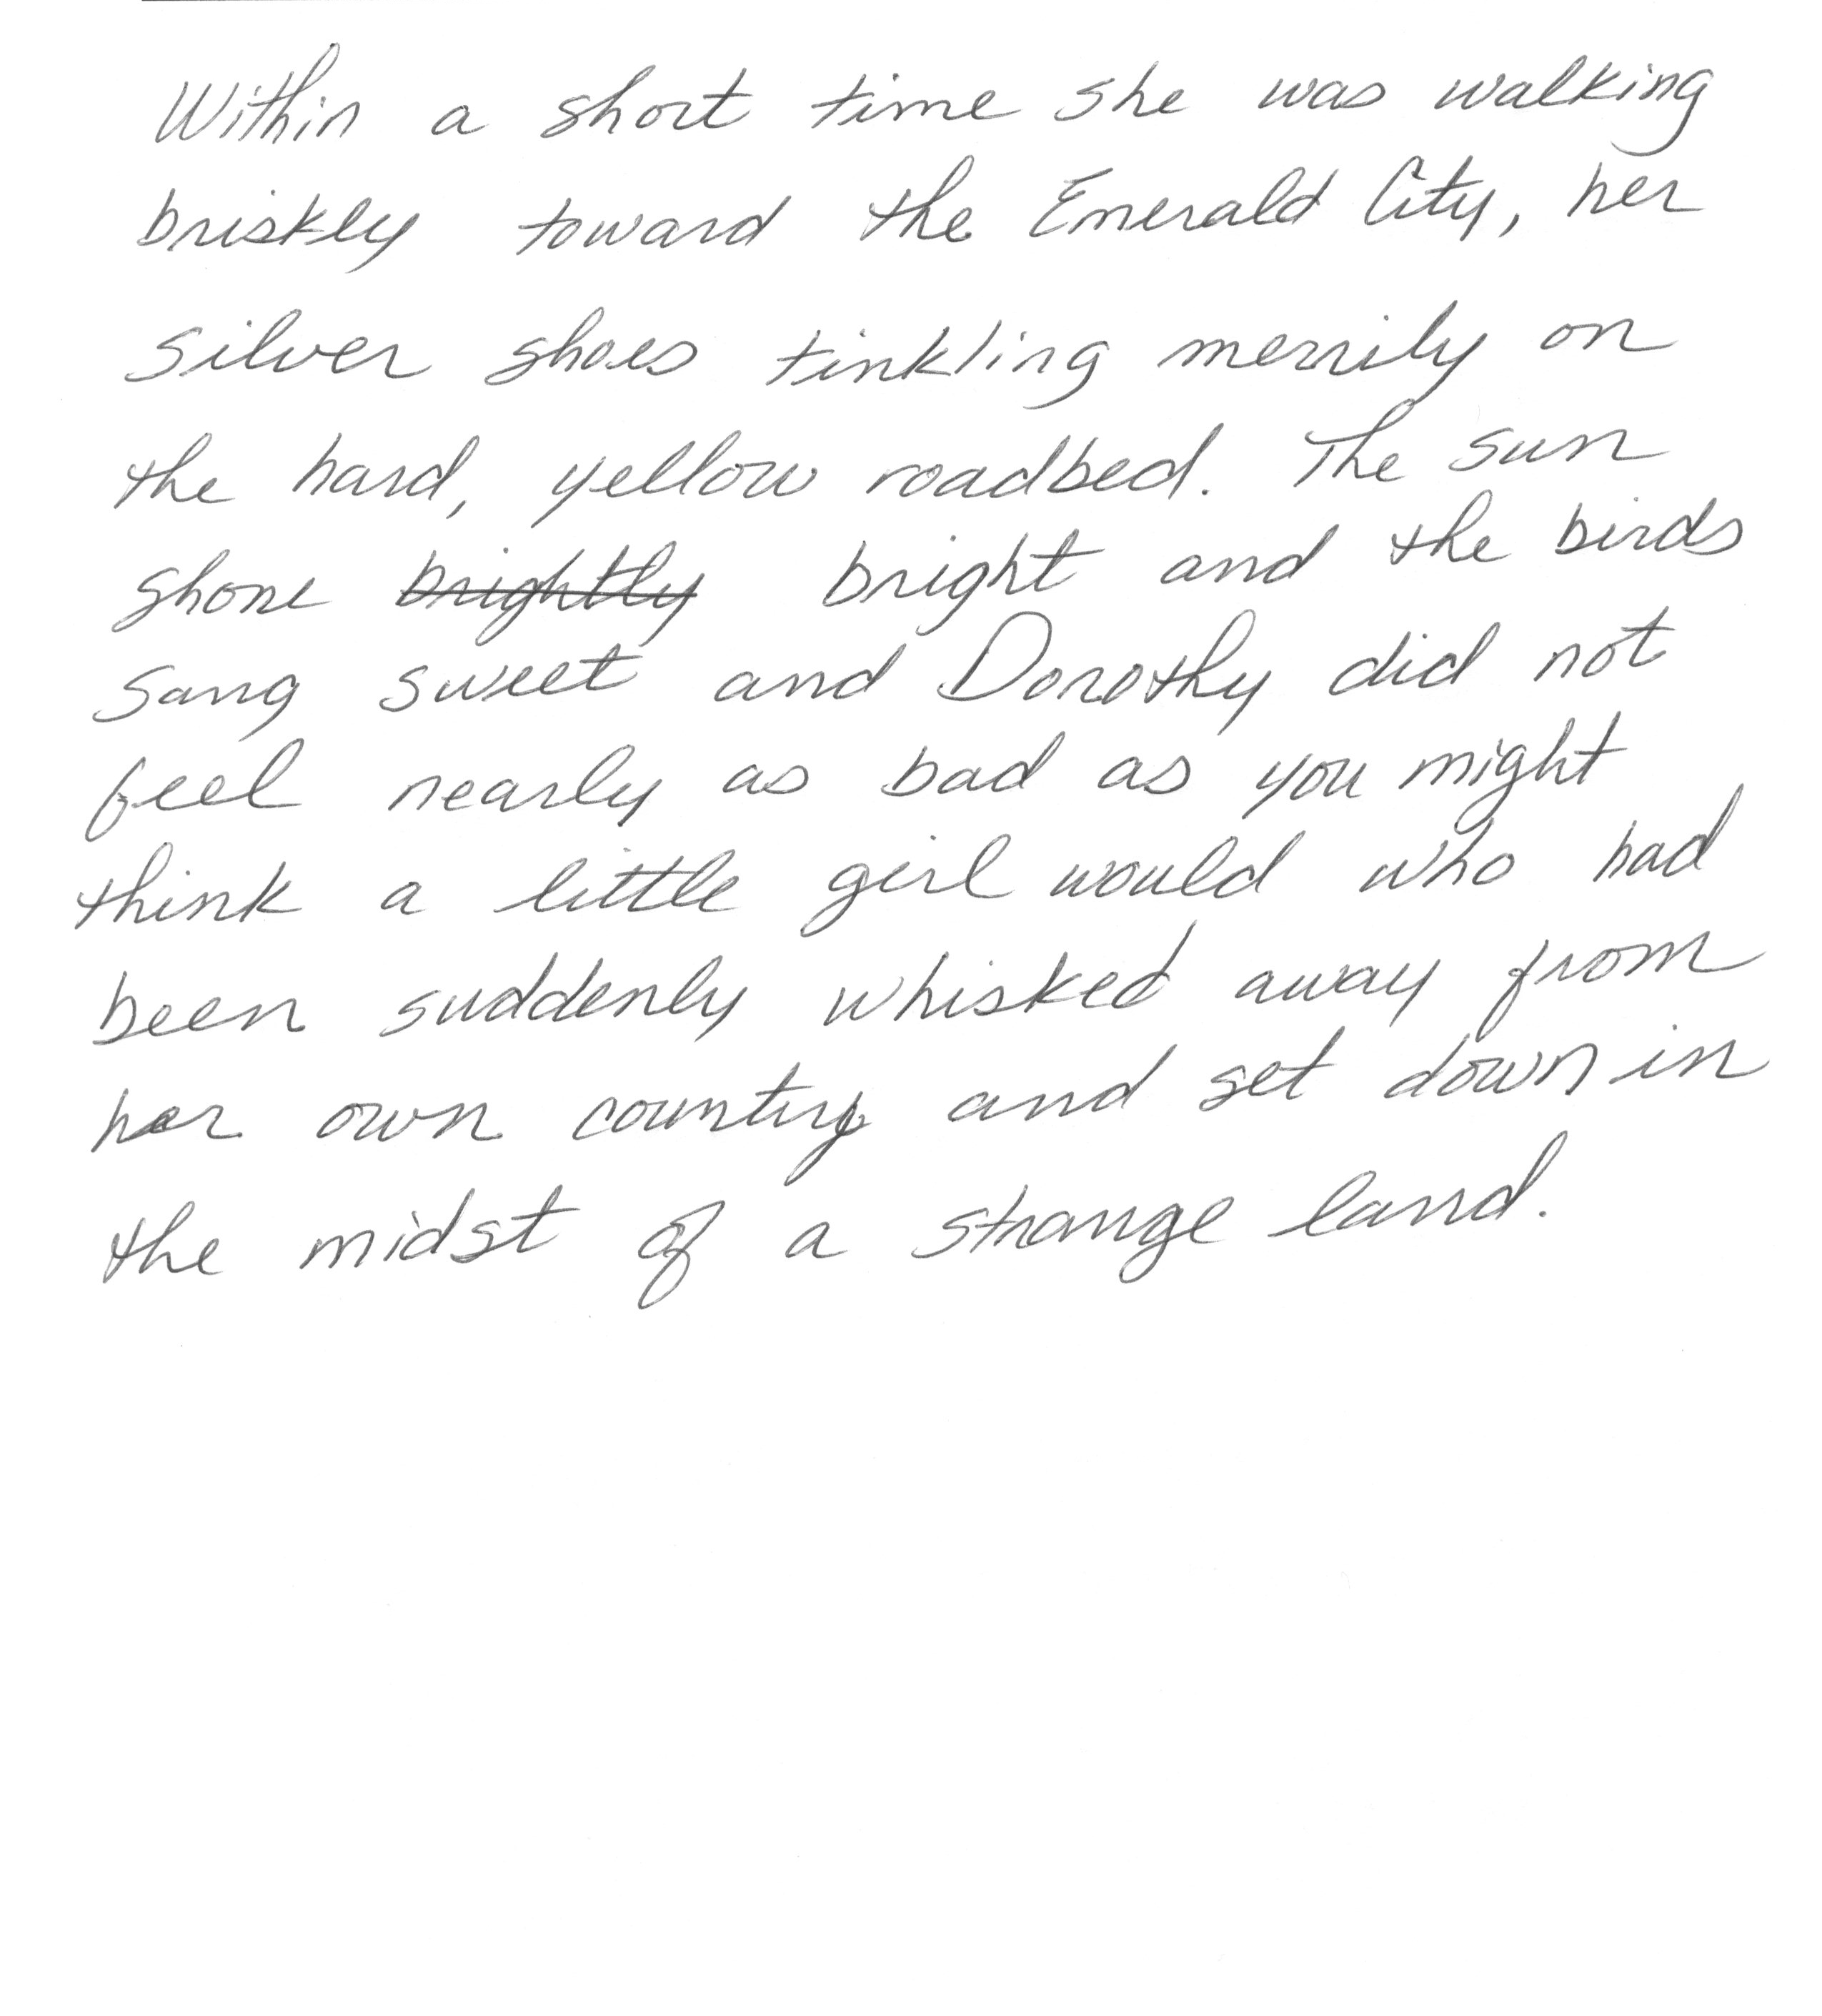 Within a short time she was walking
briskly toward the Emerald City, her
silver shoes tinkling merrily on
the hard, yellow roadbed. The sun
shone ~~brightly~~ bright and the birds
sang sweet and Dorothy did not
feel nearly as bad as you might
think a little girl would who had
been suddenly whisked away from
her own country and set down in
the midst of a strange land.